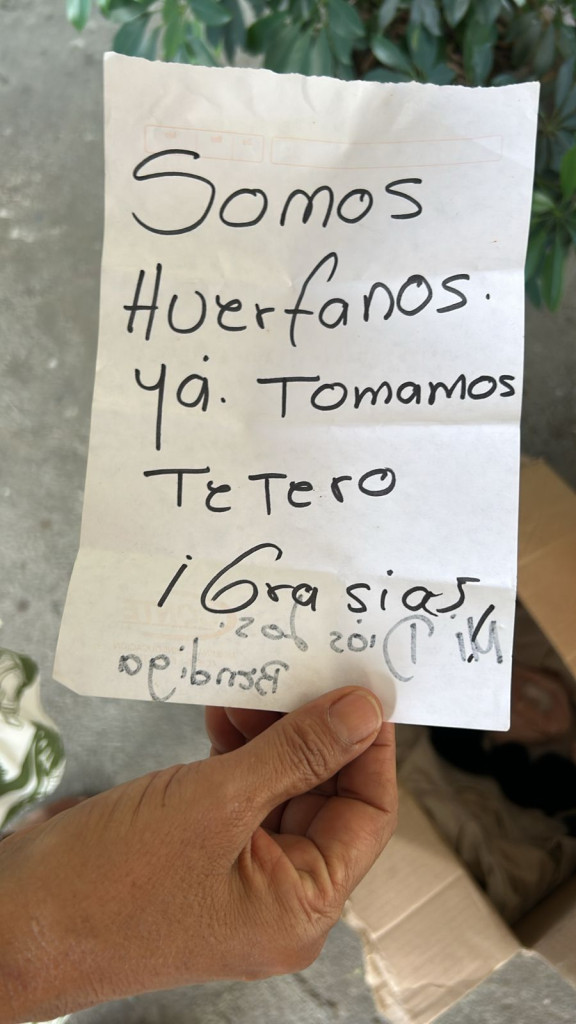 Somos
Huerfanos.
Ya. Tomamos
Tetero
¡Grasias!
Mi Dios los.
Bendiga